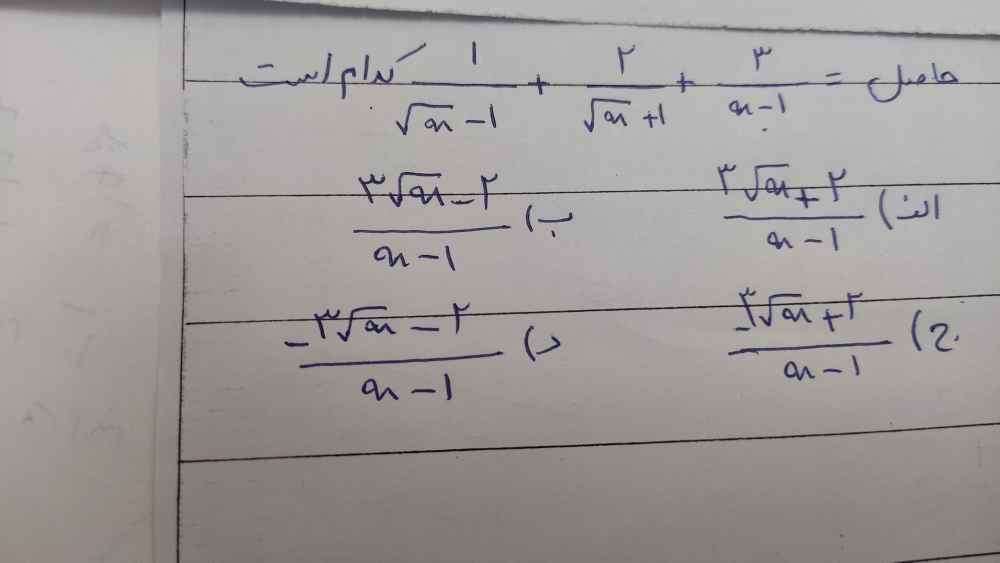 حاصل = ۳/(x-۱) + ۲/(√x+۱) + ۱/(√x-۱) کدام است
الف) (۳√x+۲)/(x-۱) ب) (۳√x-۲)/(x-۱)
ج) (-۳√x+۲)/(x-۱) د) (-۳√x-۲)/(x-۱)